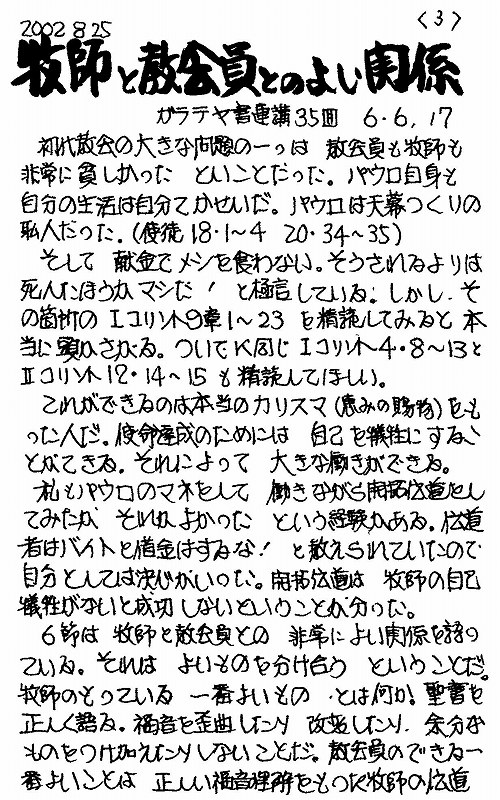 2002 8 25
〈3〉
牧師と教会員とのよい関係
ガラテヤ書連講35回 6・6, 17
初代教会の大きな問題の一つは 教会員も牧師も
非常に貧しかった ということだった。パウロ自身も
自分の生活は自分でかせいだ。パウロは天幕つくりの
職人だった。(使徒18・1~4 20・34~35)
そして 献金でメシを食わない。そうされるよりは
死んだほうがマシだ! と極言している。しかし、そ
の箇所の Iコリント9章1~23 を精読してみると 本
当に 驚かされる。ついでに同じ Iコリント4・8~13と
IIコリント12・14~15 も精読してほしい。
これができるのは本当のカリスマ(恵みの賜物)をも
った人だ。使命達成のためには 自己を犠牲にするこ
とができる。それによって 大きな働きができる。
私もパウロのマネをして 働きながら開拓伝道をし
てみたが それがよかった という経験がある。伝道
者はバイトと借金はするな! と教えられていたので
自分としては決心がいった。開拓伝道は 牧師の自己
犠牲がないと成功しないということが分った。
6節は 牧師と教会員との 非常によい関係を語っ
ている。それは よいものを分け合う ということだ。
牧師のもっている 一番よいもの とは何か! 聖書を
正しく語る。福音を歪曲したり 改造したり、余分な
ものをつけ加えたりしないことだ。教会員のできる一
番よいことは 正しい福音理解をもった牧師の伝道